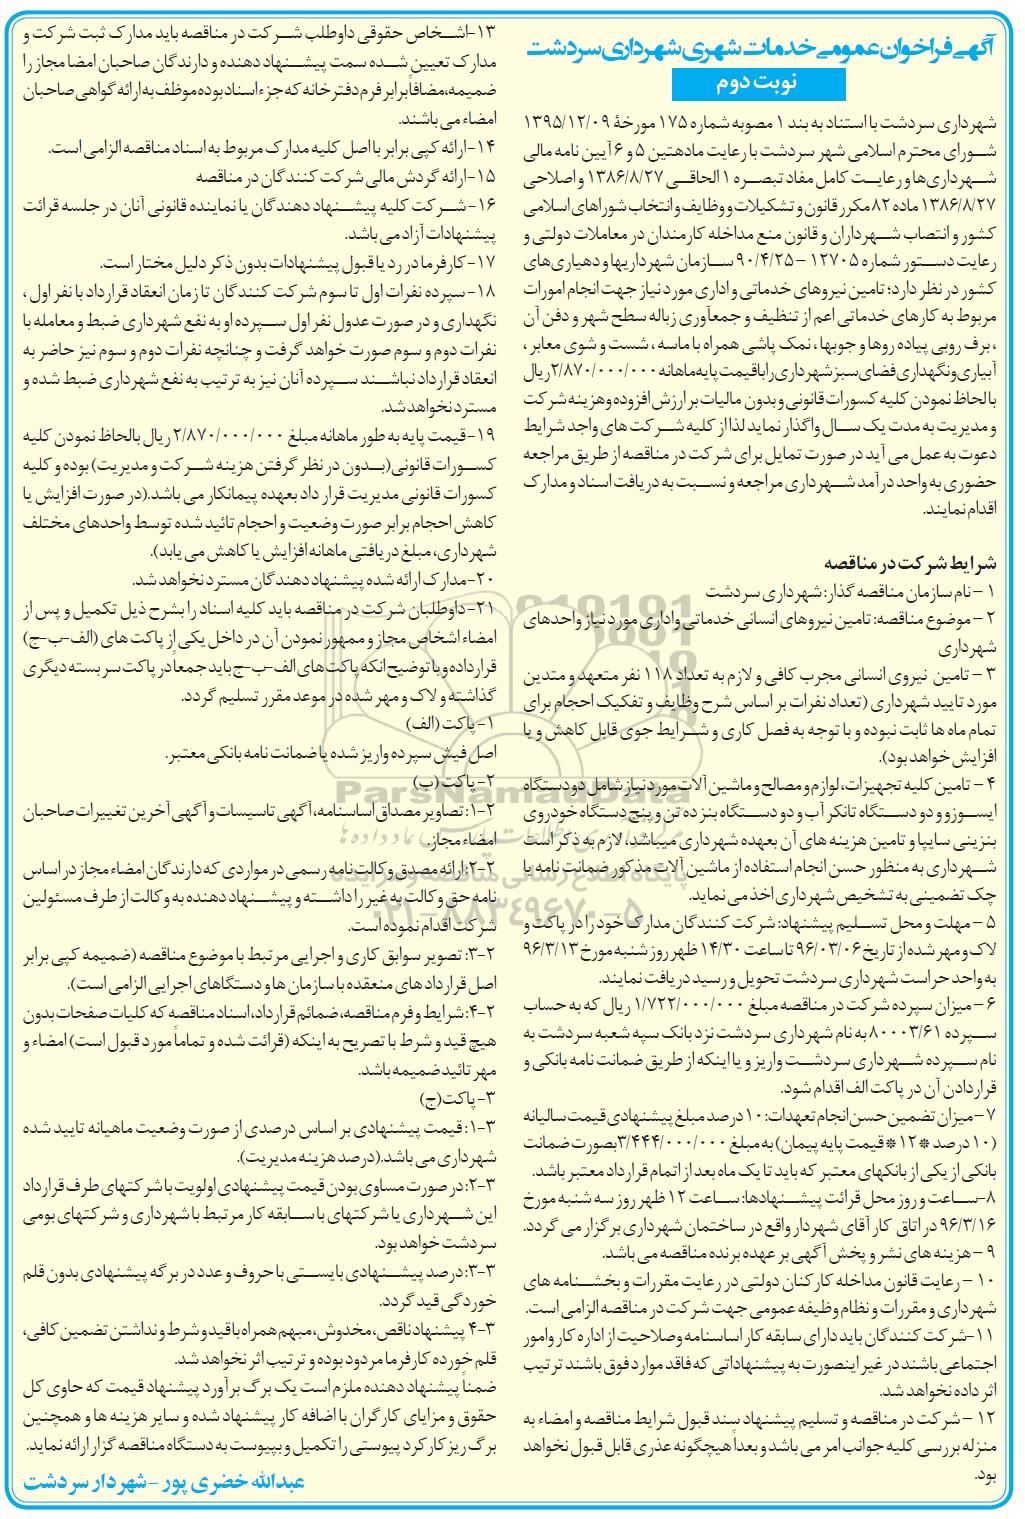 آگهی فراخوان عمومی خدمات شهری شهرداری سردشت
نوبت دوم
شهرداری سردشت با استناد به بند ۱ مصوبه شماره ۱۷۵ مورخهٔ ۱۳۹۵/۱۲/۰۹
شورای محترم اسلامی شهر سردشت با رعایت مادهتین ۵ و ۶ آیین نامه مالی
شهرداری‌ها و رعایت کامل مفاد تبصره ۱ الحاقی ۱۳۸۶/۸/۲۷ و اصلاحی
۱۳۸۶/۸/۲۷ ماده ۸۲ مکرر قانون و تشکیلات و وظایف و انتخاب شوراهای اسلامی
کشور و انتصاب شهرداران و قانون منع مداخله کارمندان در معاملات دولتی و
رعایت دستور شماره ۱۲۷۰۵ – ۹۰/۴/۲۵ سازمان شهرداریها و دهیاری‌های
کشور در نظر دارد؛ تامین نیروهای خدماتی و اداری مورد نیاز جهت انجام امورات
مربوط به کارهای خدماتی اعم از تنظیف و جمعآوری زباله سطح شهر و دفن آن
، برف روبی پیاده روها و جوبها ، نمک پاشی همراه با ماسه ، شست و شوی معابر ،
آبیاری ونگهداری فضای سبز شهرداری را با قیمت پایه ماهانه ۲/۸۷۰/۰۰۰/۰۰۰ ریال
با لحاظ نمودن کلیه کسورات قانونی و بدون مالیات بر ارزش افزوده و هزینه شرکت
و مدیریت به مدت یک سال واگذار نماید لذا از کلیه شرکت های واجد شرایط
دعوت به عمل می آید در صورت تمایل برای شرکت در مناقصه از طریق مراجعه
حضوری به واحد درآمد شهرداری مراجعه و نسبت به دریافت اسناد و مدارک
اقدام نمایند.
شرایط شرکت در مناقصه
۱ – نام سازمان مناقصه گذار: شهرداری سردشت
۲ – موضوع مناقصه: تامین نیروهای انسانی خدماتی واداری مورد نیاز واحدهای
شهرداری
۳ – تامین نیروی انسانی مجرب کافی و لازم به تعداد ۱۱۸ نفر متعهد و متدین
مورد تایید شهرداری (تعداد نفرات بر اساس شرح وظایف و تفکیک احجام برای
تمام ماه ها ثابت نبوده و با توجه به فصل کاری و شرایط جوی قابل کاهش و یا
افزایش خواهد بود).
۴ – تامین کلیه تجهیزات، لوازم و مصالح و ماشین آلات مورد نیاز شامل دو دستگاه
ایسوزو و دو دستگاه تانکر آب و دو دستگاه بنز ده تن و پنج دستگاه خودروی
بنزینی سایپا و تامین هزینه های آن بعهده شهرداری میباشد، لازم به ذکر است
شهرداری به منظور حسن انجام استفاده از ماشین آلات مذکور ضمانت نامه یا
چک تضمینی به تشخیص شهرداری اخذ می نماید.
۵ – مهلت و محل تسلیم پیشنهاد: شرکت کنندگان مدارک خود را در پاکت و
لاک و مهر شده از تاریخ ۹۶/۰۳/۰۶ تا ساعت ۱۴/۳۰ ظهر روز شنبه مورخ ۹۶/۳/۱۳
به واحد حراست شهرداری سردشت تحویل و رسید دریافت نمایند.
۶ – میزان سپرده شرکت در مناقصه مبلغ ۱/۷۲۲/۰۰۰/۰۰۰ ریال که به حساب
سپرده ۸۰۰۰۳/۶۱ به نام شهرداری سردشت نزد بانک سپه شعبه سردشت به
نام سپرده شهرداری سردشت واریز و یا اینکه از طریق ضمانت نامه بانکی و
قراردادن آن در پاکت الف اقدام شود.
۷ – میزان تضمین حسن انجام تعهدات: ۱۰ درصد مبلغ پیشنهادی قیمت سالیانه
(۱۰ درصد * ۱۲ * قیمت پایه پیمان) به مبلغ ۳/۴۴۴/۰۰۰/۰۰۰ بصورت ضمانت
بانکی از یکی از بانکهای معتبر که باید تا یک ماه بعد از اتمام قرارداد معتبر باشد.
۸-ساعت و روز محل قرائت پیشنهادها: ساعت ۱۲ ظهر روز سه شنبه مورخ
۹۶/۳/۱۶ در اتاق کار آقای شهردار واقع در ساختمان شهرداری برگزار می گردد.
۹ – هزینه های نشر و پخش آگهی بر عهده برنده مناقصه می باشد.
۱۰ – رعایت قانون مداخله کارکنان دولتی در رعایت مقررات و بخشنامه های
شهرداری و مقررات و نظام وظیفه عمومی جهت شرکت در مناقصه الزامی است.
۱۱-شرکت کنندگان باید دارای سابقه کار اساسنامه وصلاحیت از اداره کار وامور
اجتماعی باشند در غیر اینصورت به پیشنهاداتی که فاقد موارد فوق باشند ترتیب
اثر داده نخواهد شد.
۱۲ – شرکت در مناقصه و تسلیم پیشنهاد سند قبول شرایط مناقصه و امضاء به
منزله بررسی کلیه جوانب امر می باشد و بعداً هیچگونه عذری قابل قبول نخواهد
بود.
۱۳-اشخاص حقوقی داوطلب شرکت در مناقصه باید مدارک ثبت شرکت و
مدارک تعیین شده سمت پیشنهاد دهنده و دارندگان صاحبان امضا مجاز را
ضمیمه، مضافاً برابر فرم دفترخانه که جزء اسناد بوده موظف به ارائه گواهی صاحبان
امضاء می باشند.
۱۴-ارائه کپی برابر با اصل کلیه مدارک مربوط به اسناد مناقصه الزامی است.
۱۵-ارائه گردش مالی شرکت کنندگان در مناقصه
۱۶-شرکت کلیه پیشنهاد دهندگان یا نماینده قانونی آنان در جلسه قرائت
پیشنهادات آزاد می باشد.
۱۷-کارفرما در رد یا قبول پیشنهادات بدون ذکر دلیل مختار است.
۱۸-سپرده نفرات اول تا سوم شرکت کنندگان تا زمان انعقاد قرارداد با نفر اول ،
نگهداری و در صورت عدول نفر اول سپرده او به نفع شهرداری ضبط و معامله با
نفرات دوم و سوم صورت خواهد گرفت و چنانچه نفرات دوم و سوم نیز حاضر به
انعقاد قرارداد نباشند سپرده آنان نیز به ترتیب به نفع شهرداری ضبط شده و
مسترد نخواهد شد.
۱۹-قیمت پایه به طور ماهانه مبلغ ۲/۸۷۰/۰۰۰/۰۰۰ ریال بالحاظ نمودن کلیه
کسورات قانونی(بدون در نظر گرفتن هزینه شرکت و مدیریت) بوده و کلیه
کسورات قانونی مدیریت قرار داد بعهده پیمانکار می باشد.(در صورت افزایش یا
کاهش احجام برابر صورت وضعیت و احجام تائید شده توسط واحدهای مختلف
شهرداری، مبلغ دریافتی ماهانه افزایش یا کاهش می یابد).
۲۰-مدارک ارائه شده پیشنهاد دهندگان مسترد نخواهد شد.
۲۱-داوطلبان شرکت در مناقصه باید کلیه اسناد را بشرح ذیل تکمیل و پس از
امضاء اشخاص مجاز و ممهور نمودن آن در داخل یکی از پاکت های (الف-ب-ج)
قرار داده و با توضیح انکه پاکت های الف-ب-ج باید جمعا در پاکت سر بسته دیگری
گذاشته و لاک و مهر شده در موعد مقرر تسلیم گردد.
۱-پاکت (الف)
اصل فیش سپرده واریز شده یا ضمانت نامه بانکی معتبر.
۲-پاکت (ب)
۲-۱: تصاویر مصداق اساسنامه، آگهی تاسیسات و آگهی آخرین تغییرات صاحبان
امضاء مجاز.
۲-۲: ارائه مصدق وکالت نامه رسمی در مواردی که دارندگان امضاء مجاز در اساس
نامه حق وکالت به غیر را داشته و پیشنهاد دهنده به وکالت از طرف مسئولین
شرکت اقدام نموده است.
۲-۳: تصویر سوابق کاری و اجرایی مرتبط با موضوع مناقصه (ضمیمه کپی برابر
اصل قرار داد های منعقده با سازمان ها و دستگاهای اجرایی الزامی است).
۲-۴: شرایط و فرم مناقصه، ضمائم قرارداد، اسناد مناقصه که کلیات صفحات بدون
هیچ قید و شرط با تصریح به اینکه (قرائت شده و تماماً مورد قبول است) امضاء و
مهر تائید ضمیمه باشد.
۳-پاکت(ج)
۳-۱: قیمت پیشنهادی بر اساس درصدی از صورت وضعیت ماهیانه تایید شده
شهرداری می باشد.(درصد هزینه مدیریت).
۳-۲: در صورت مساوی بودن قیمت پیشنهادی اولویت با شرکتهای طرف قرارداد
این شهرداری یا شرکتهای با سابقه کار مرتبط با شهرداری و شرکتهای بومی
سردشت خواهد بود.
۳-۳: درصد پیشنهادی بایستی با حروف و عدد در برگه پیشنهادی بدون قلم
خوردگی قید گردد.
۳-۴ پیشنهاد ناقص، مخدوش، مبهم همراه با قید و شرط و نداشتن تضمین کافی،
قلم خورده کارفرما مردود بوده و ترتیب اثر نخواهد شد.
ضمناً پیشنهاد دهنده ملزم است یک برگ برآورد پیشنهاد قیمت که حاوی کل
حقوق و مزایای کارگران با اضافه کار پیشنهاد شده و سایر هزینه ها و همچنین
برگ ریز کارکرد پیوستی را تکمیل و بپیوست به دستگاه مناقصه گزار ارائه نماید.
عبدالله خضری پور – شهردار سردشت
ParsNamadData
پایگاه اطلاع رسانی مناقصه و مزایده
۰۲۱-۸۸۳۴۹۶۷۰-۵